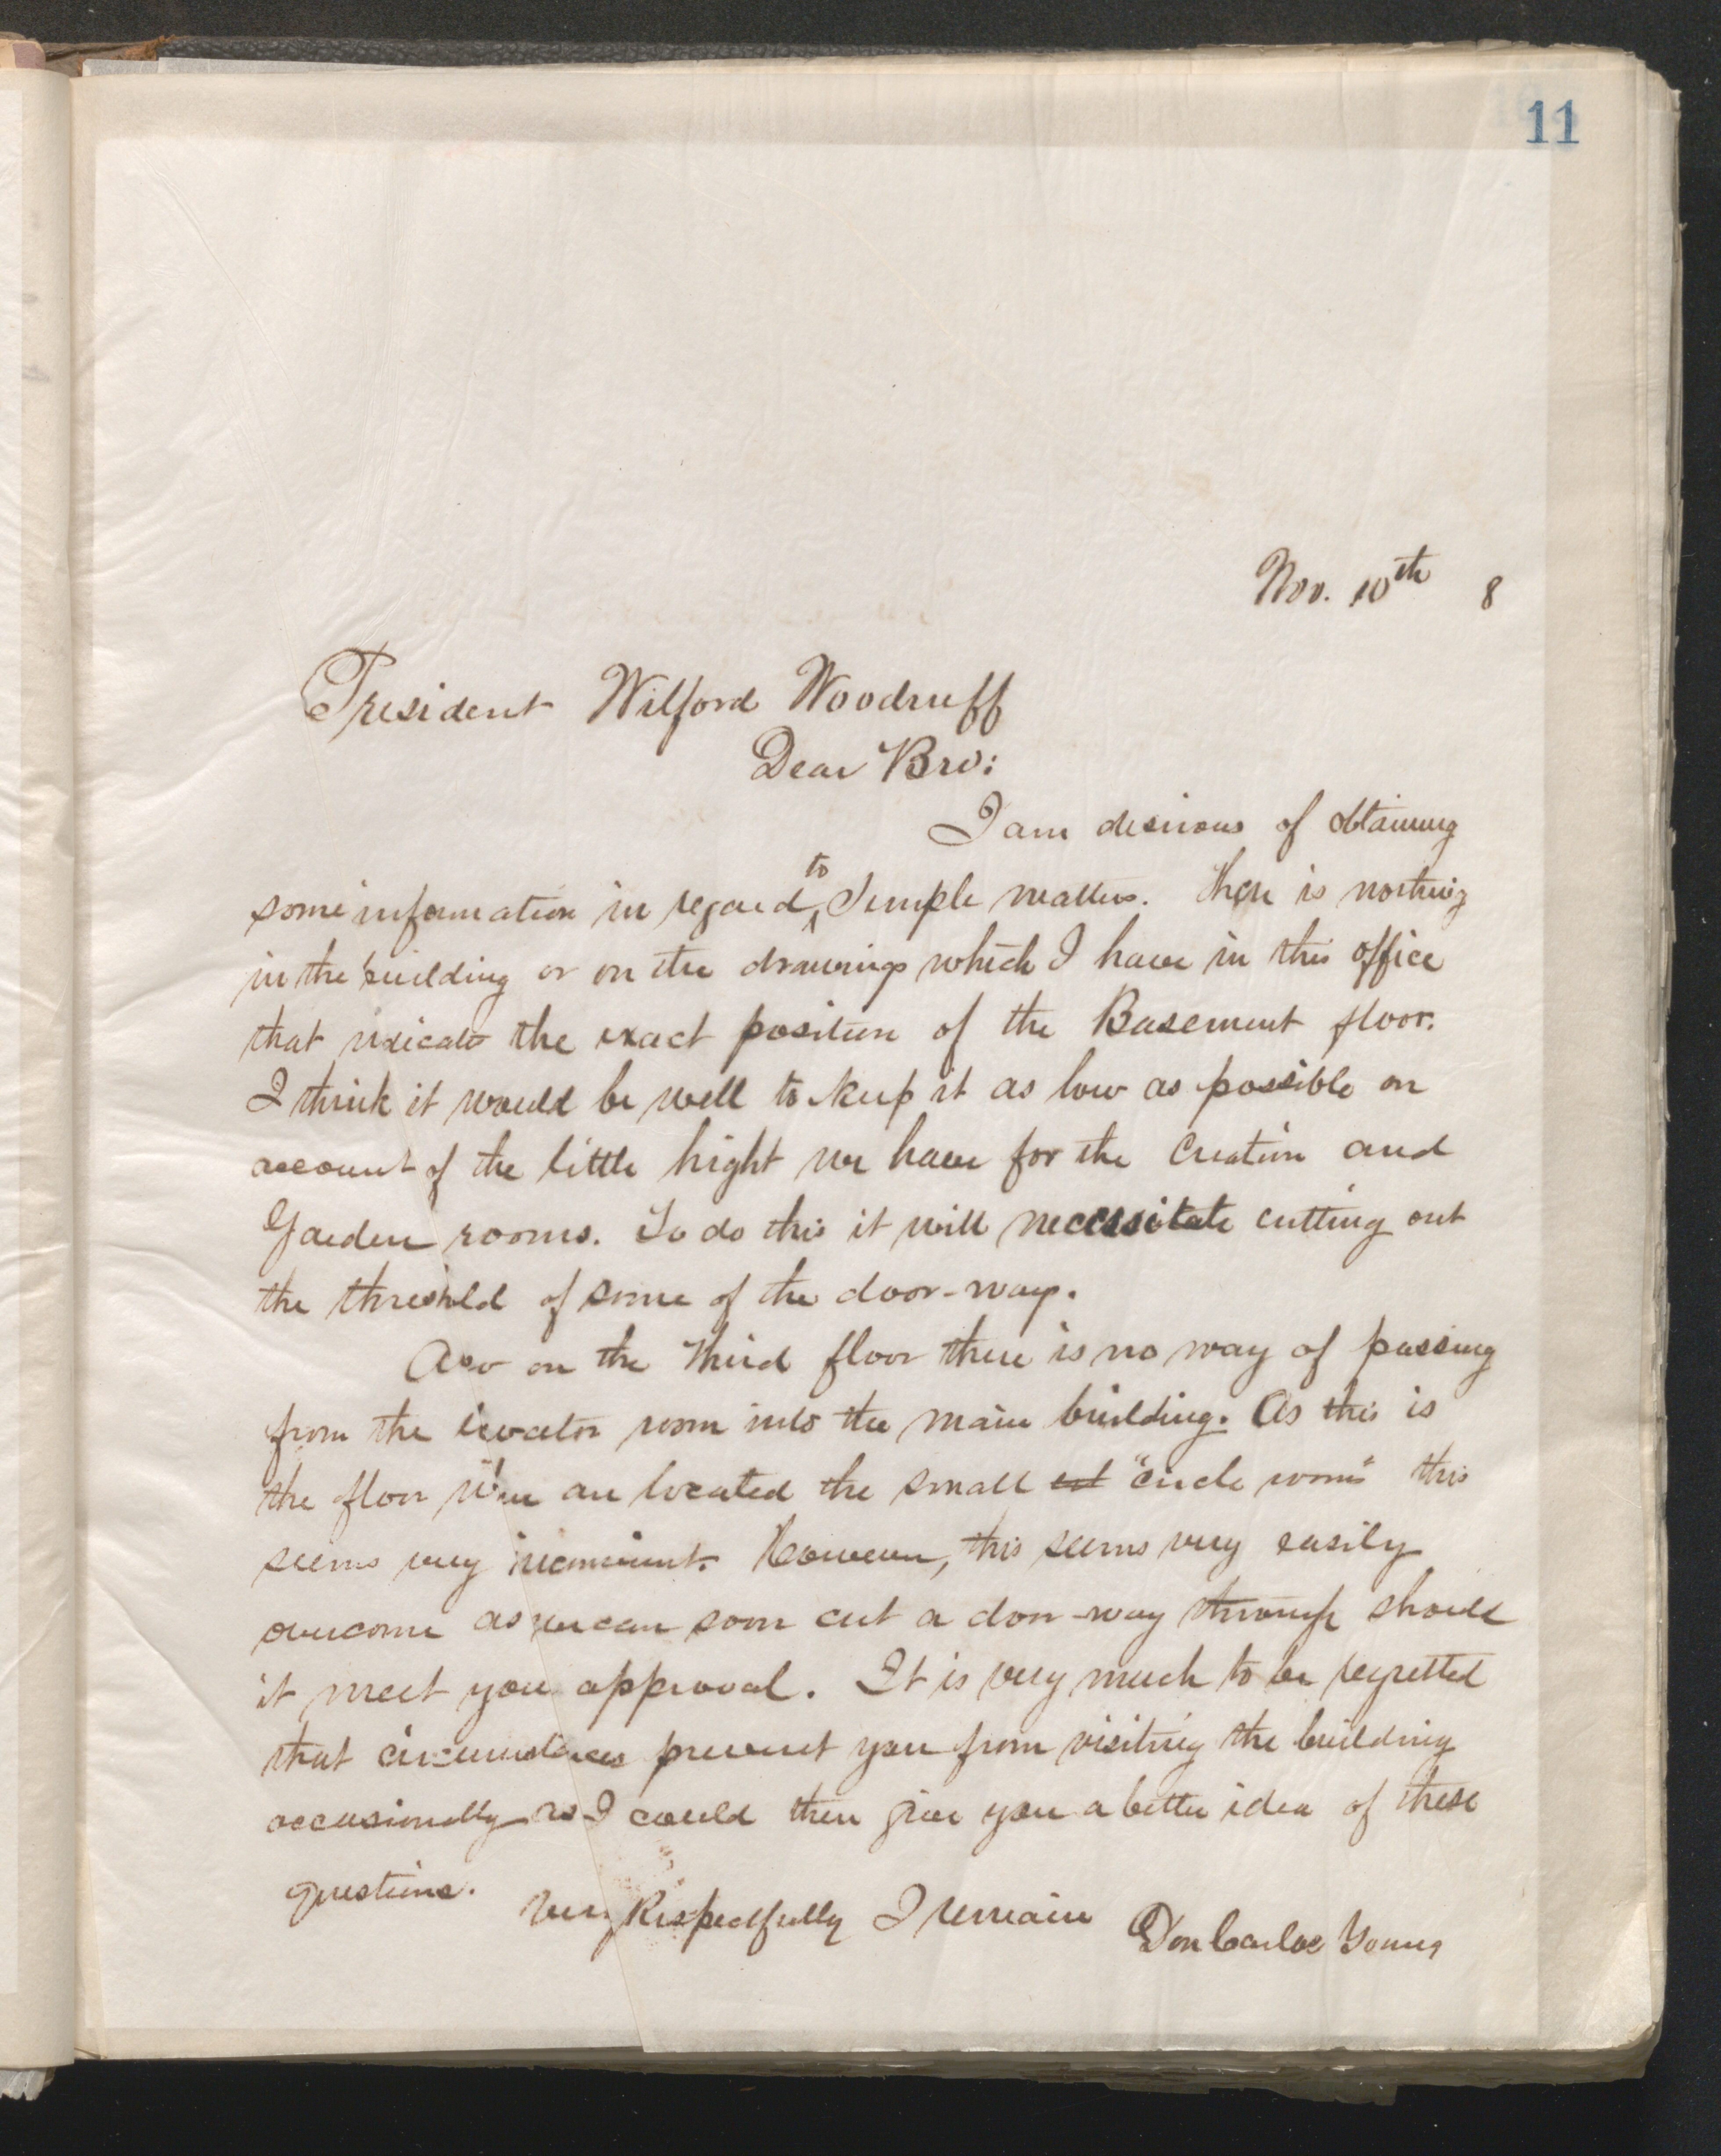 11
Nov. 10th 8
President Wilford Woodruff
Dear Bro:
I am desirous of obtaining
some information in regard to Temple matters. There is nothing
in the building or on the drawings which I have in this office
that indicate the exact position of the Basement floor.
I think it would be well to keep it as low as possible on
account of the little hight we have for the Creation and
Garden rooms. To do this it will necessitate cutting out
the threshold of some of the door-ways.
Also on the third floor there is no way of passing
from the elevator room into the main building. As this is
the floor were are located the small "circle rooms" this
seems very inconvenient. However, this seems very easily
overcome as we can soon cut a door-way through should
it meet your approval. It is very much to be regretted
that circumstances prevent you from visiting the building
occasionally as I could then give you a better idea of these
questions.
Very Respectfully I remain
Don Carlos Young